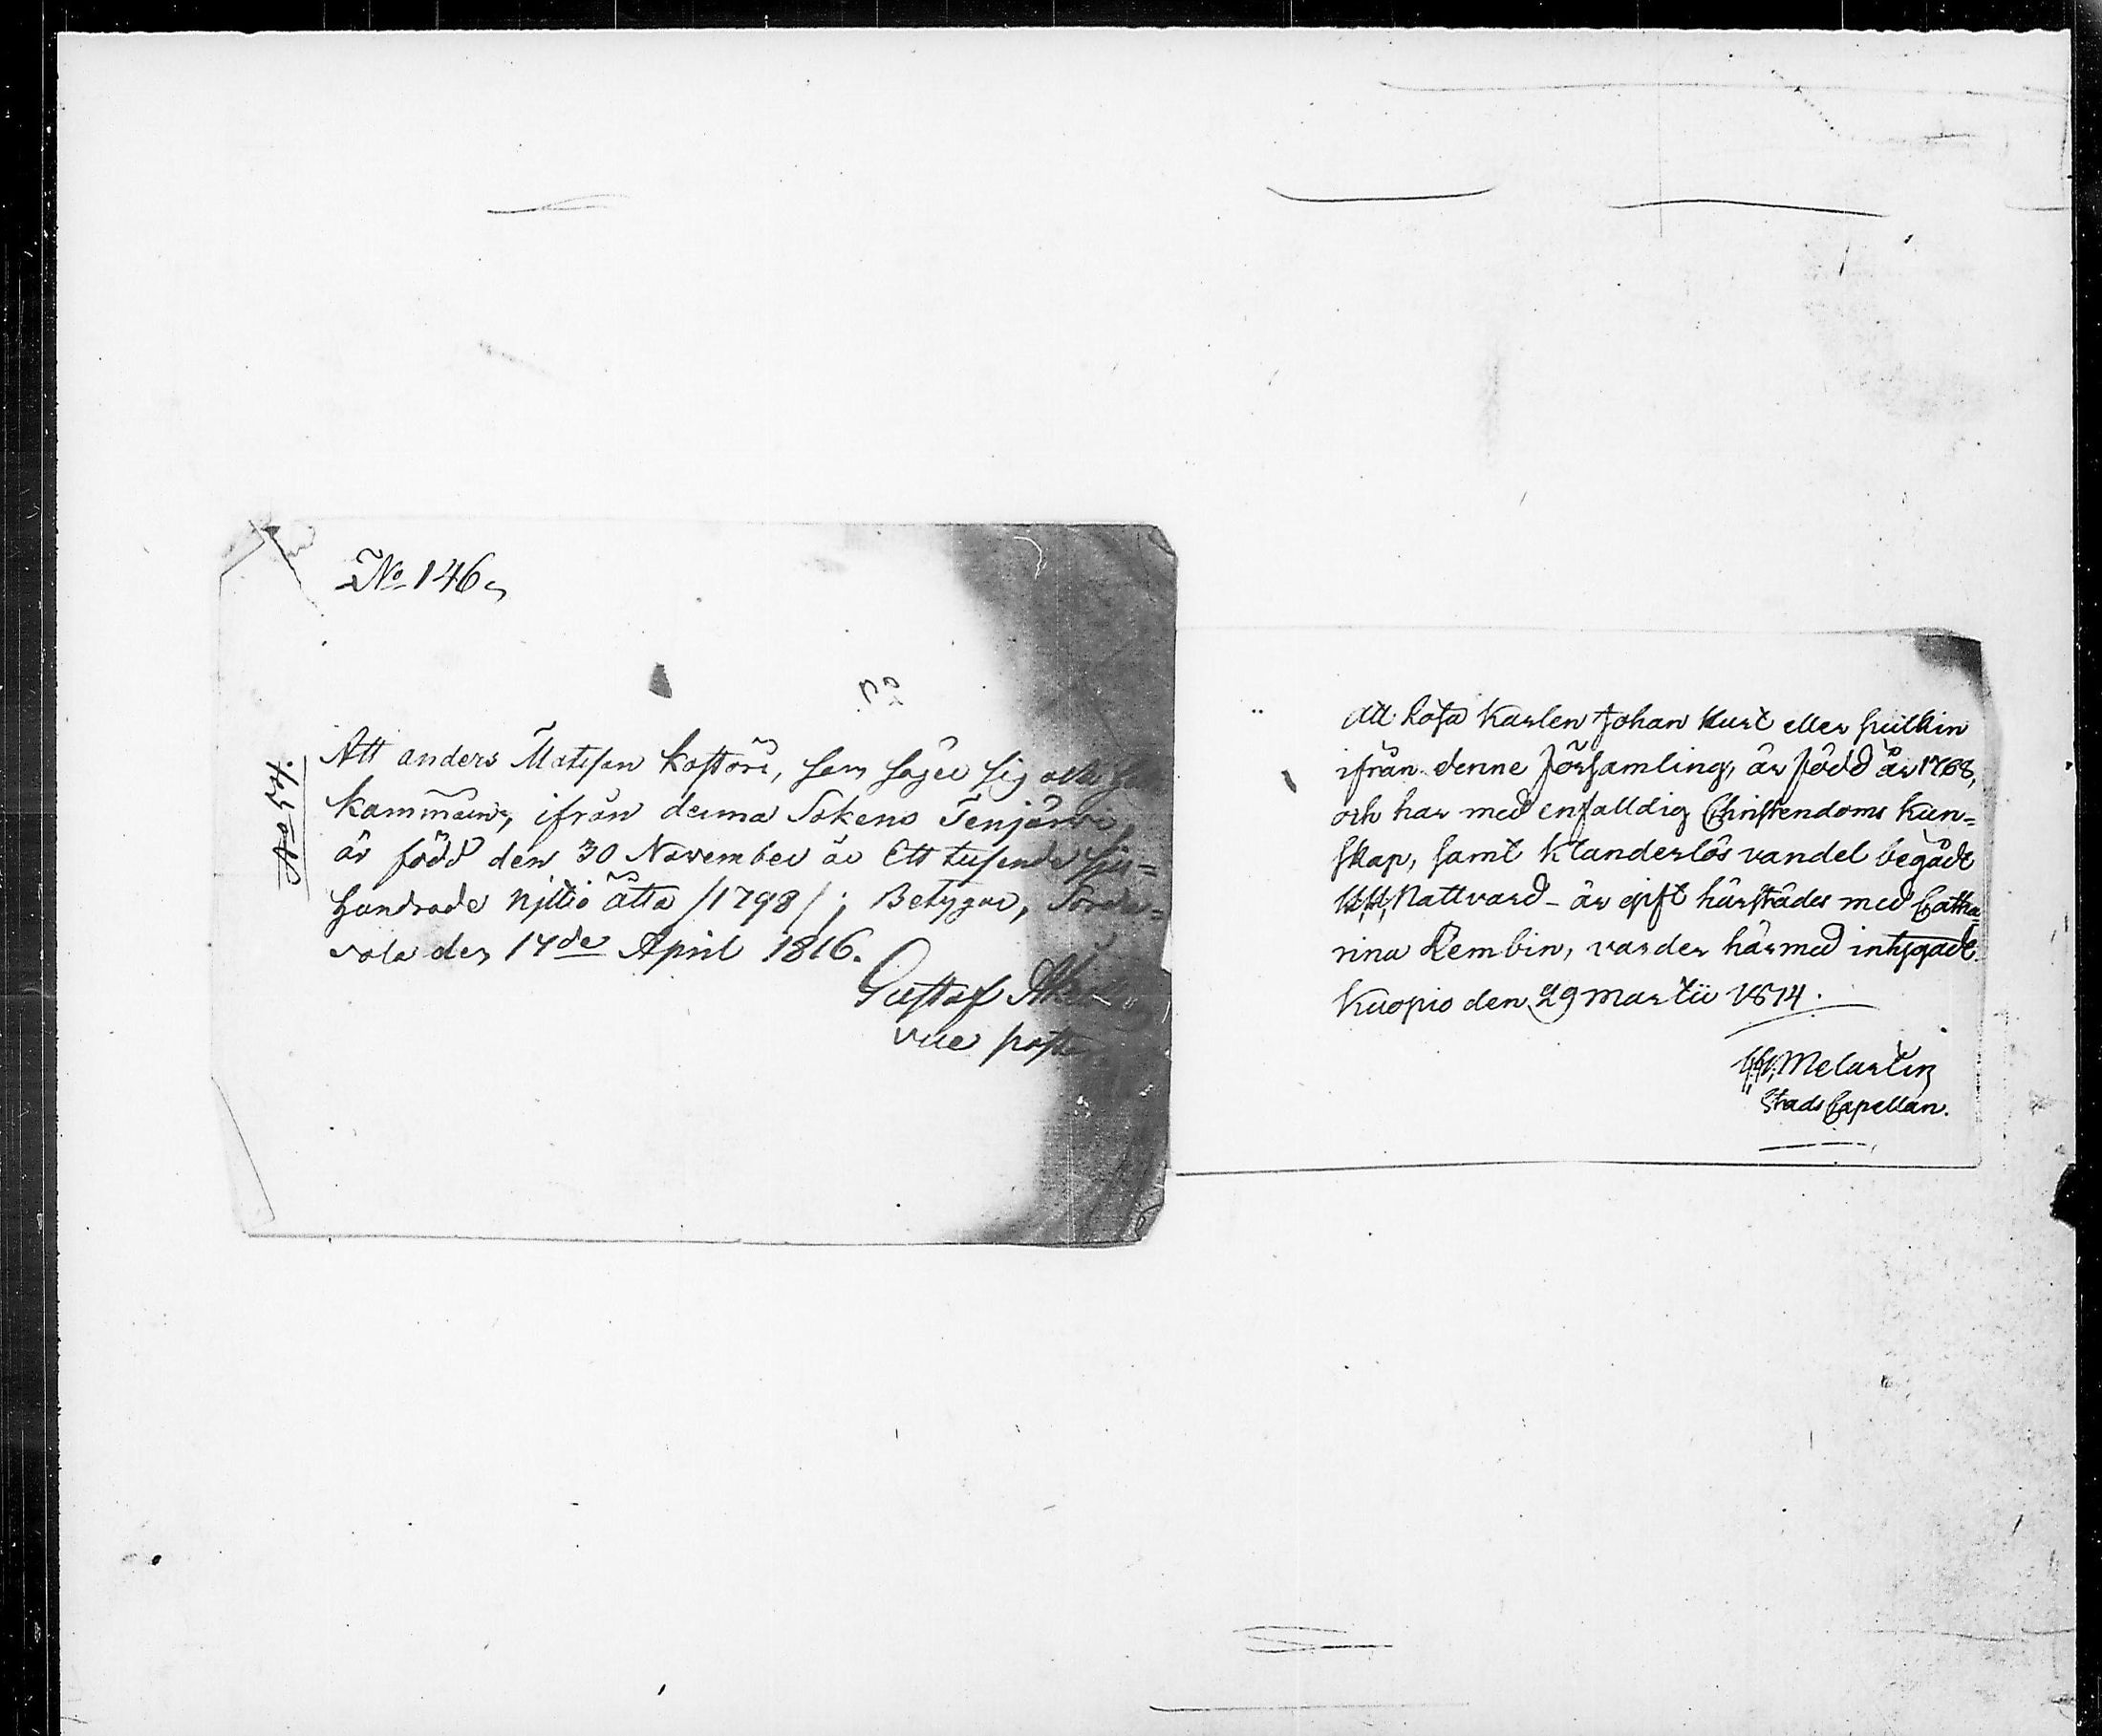 No 146.
No 54.
Att anders Matsson Kostöri, som säger sig
kammain, ifrån denna Sokens Tenjärvi,
är född den 30 November år Ett tusende sju=
hundrade nittio åtta /1798/; Betygar, Sorda=
vala den 14de April 1816.
Gustaf
vice past
Att Lösa Karlen Johan Kurt eller Hulkin
ifrån denne Församling, är född år 1768,
och har med enfalldig Christendoms kun=
skap, samt klanderlös vandel begådt
H.H. Nattvard - är gift härstädes med Catha=
rina Rembin, varder härmed intygadt.
Kuopio den 29 Martii 1814.
Melartin
Stads Capellan.